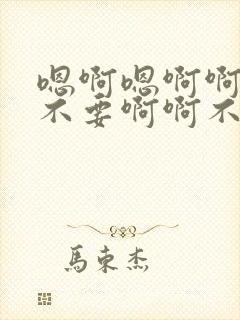 嗯啊嗯啊啊
不要啊啊不
馬束杰